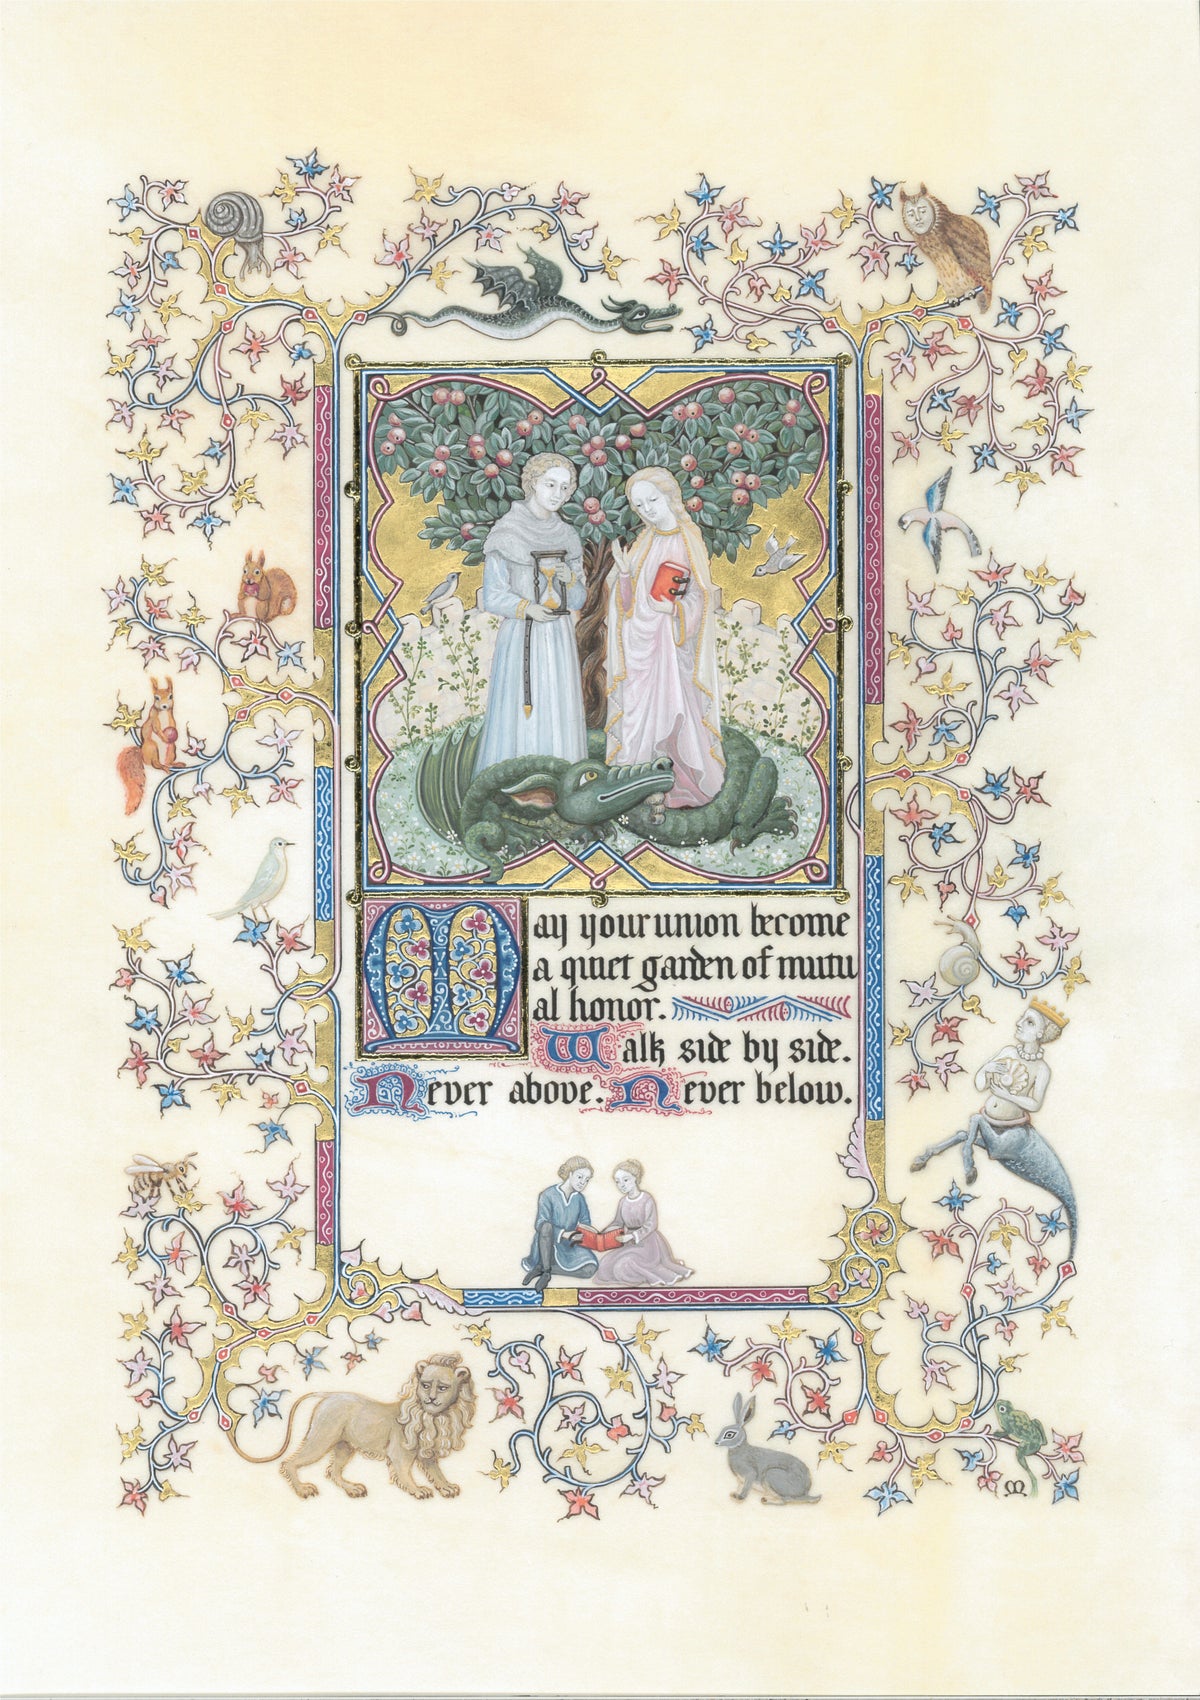 May your union become
a quiet garden of mutu
al honor.
Walk side by side.
Never above. Never below.